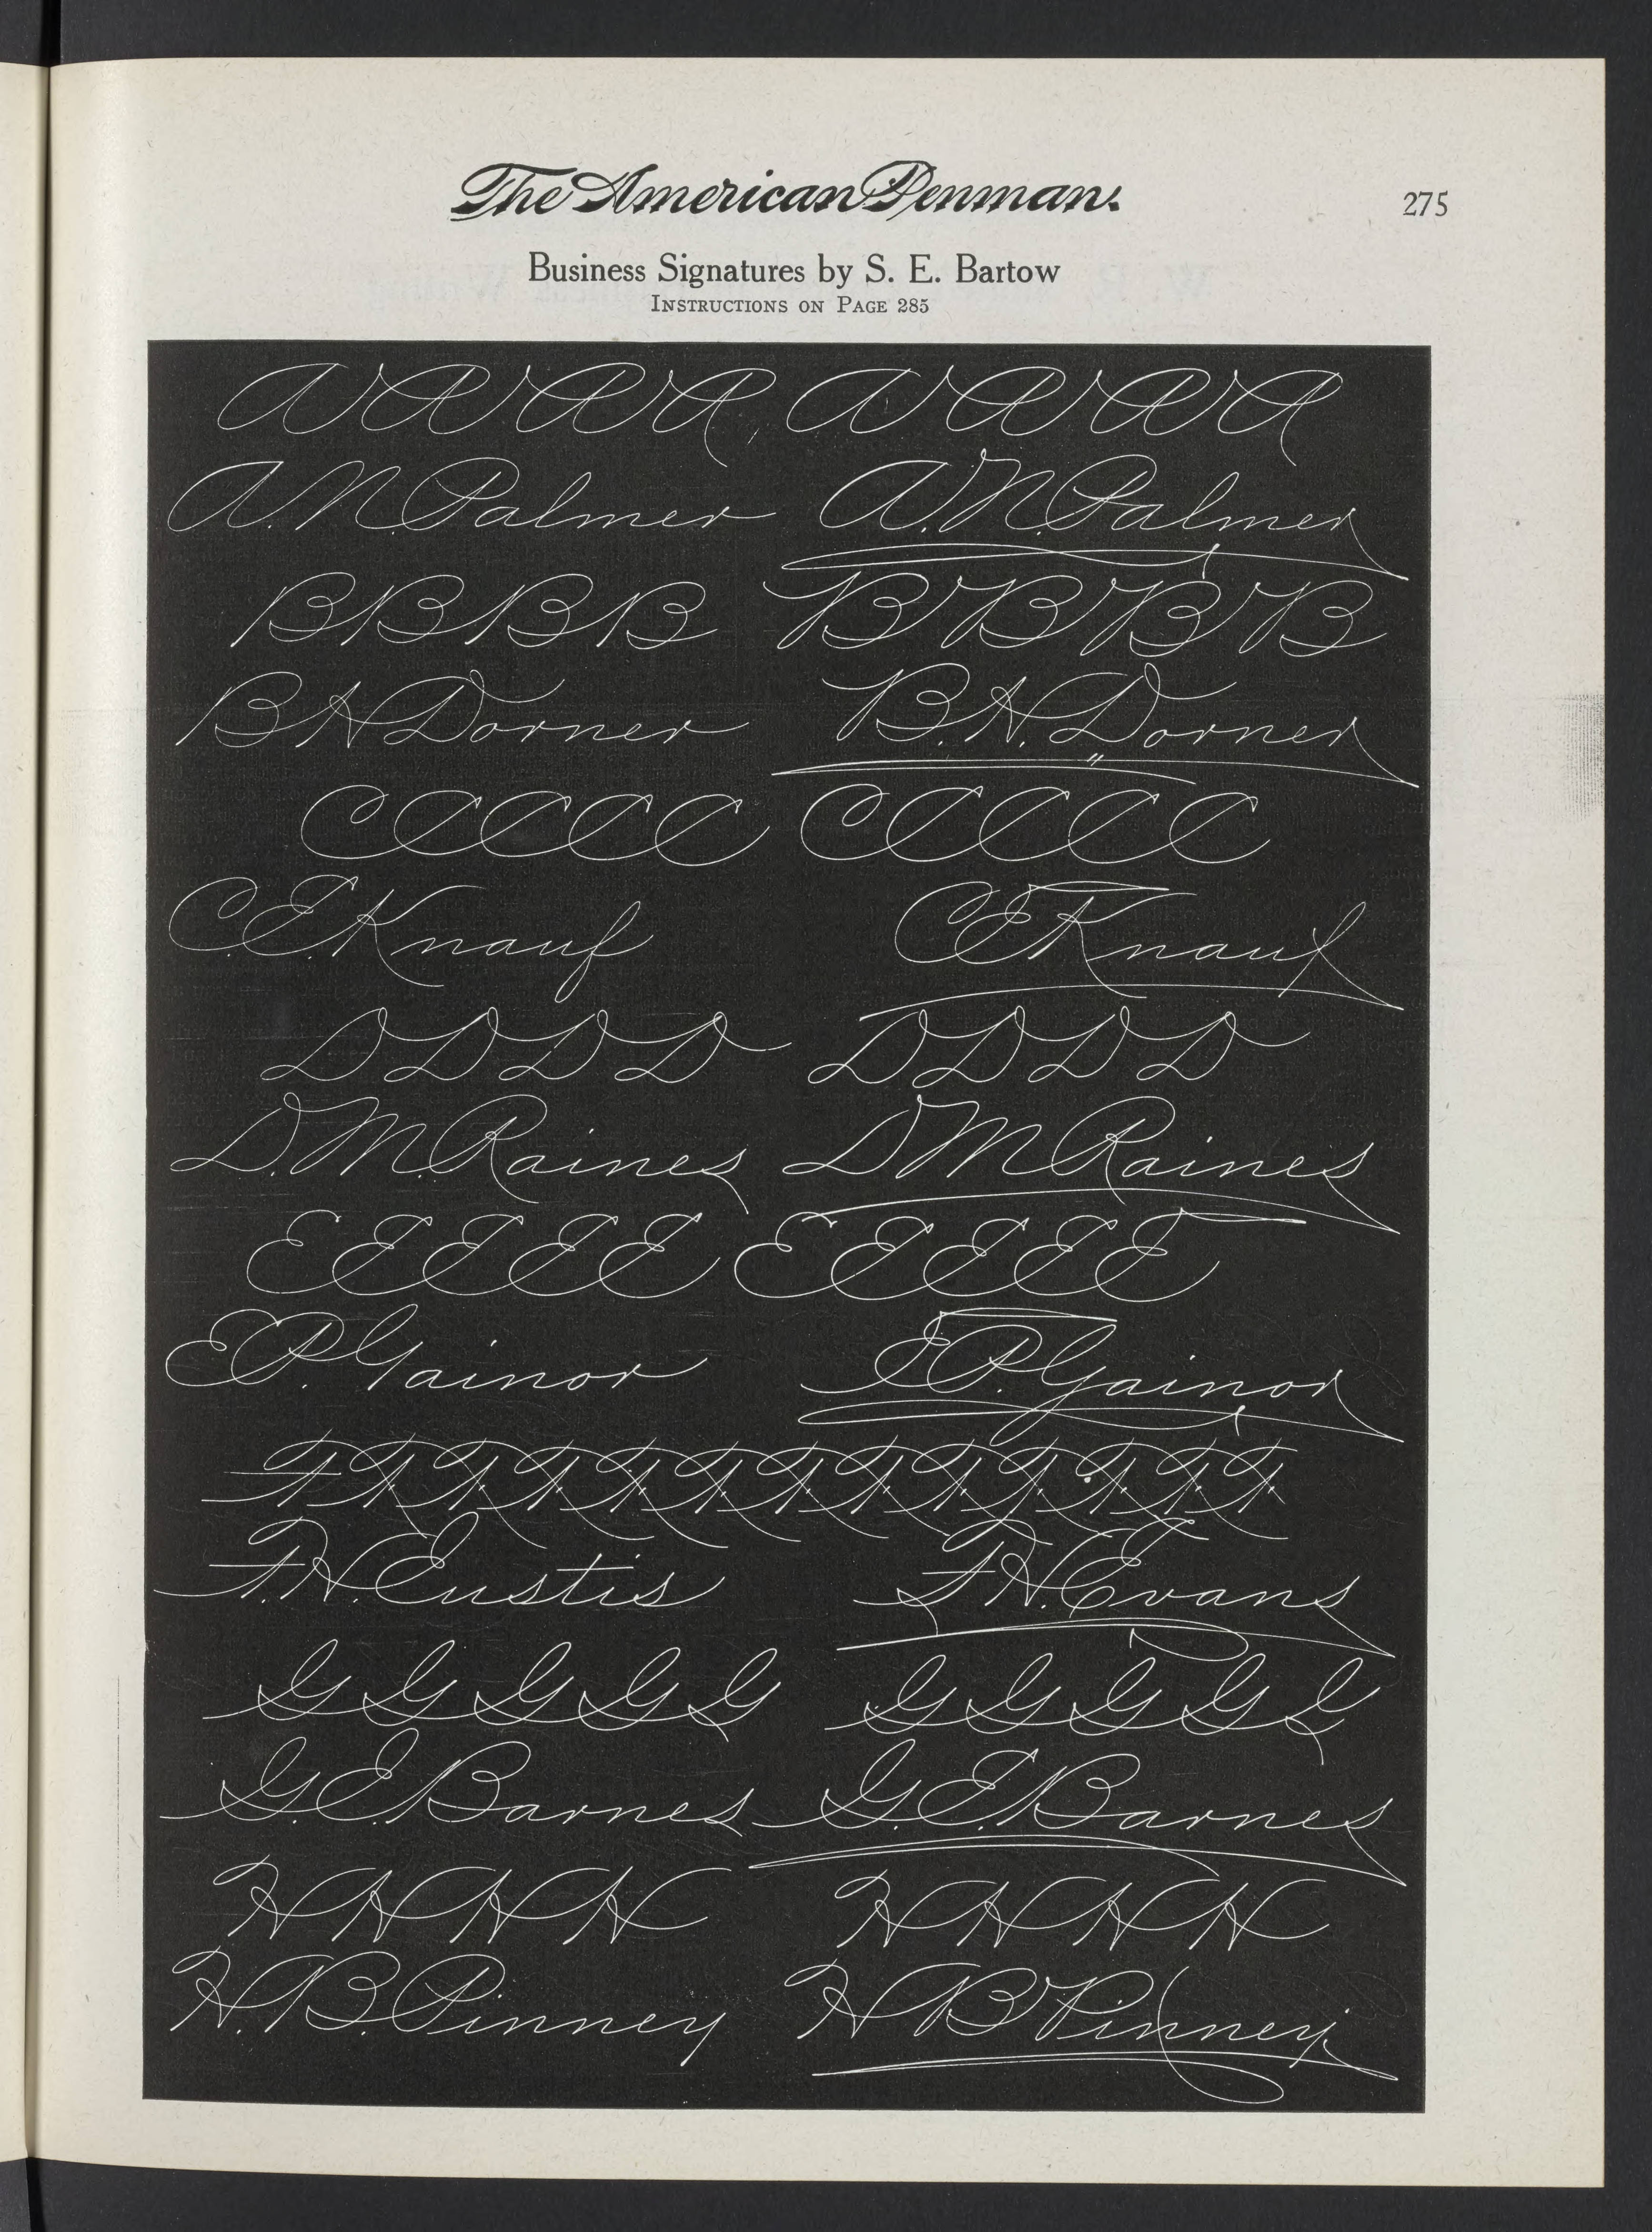 The American Penman. 275
Business Signatures by S. E. Bartow
Instructions on Page 285
A A A A A A A A
A. N. Palmer A. N. Palmer
B B B B B B B B
B H Dorner B. H. Dorner
C C C C C C C C C C
C. E. Knauf C E Knauf
D D D D D D D D
D. M. Raines D M Raines
E E E E E E E E E E
E P. Gainor E P. Gainor
F F F F F F F F F F F F F
F. H. Eustis F H. Evans
G G G G G G G G G G
G. E. Barnes G. E. Barnes
H H H H H H H H
H. B. Pinney H B Pinney